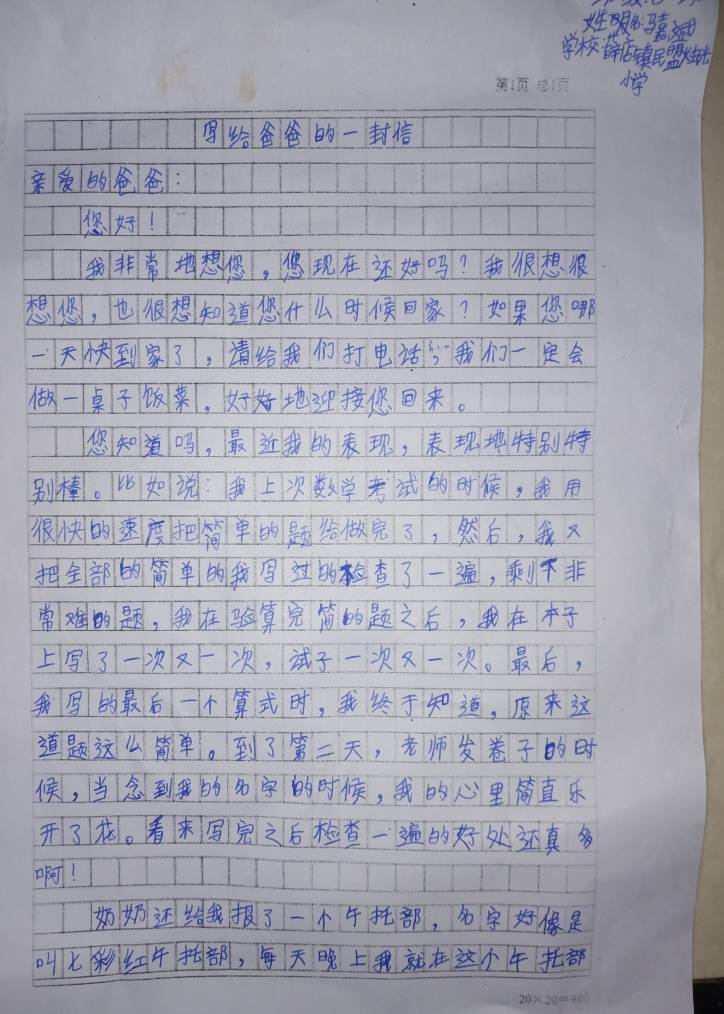 姓名:马嘉斌
学校:薛店镇民盟烛光
小学
第1页 总1页
写给爸爸的一封信
亲爱的爸爸:
您好!
我非常地想您,您现在还好吗?我很想很
想您,也很想知道您什么时候回家?如果您哪
一天快到家了,请给我们打电话,我们一定会
做一桌子饭菜,好好地迎接您回来。
您知道吗,最近我的表现,表现地特别特
别棒。比如说:我上次数学考试的时候,我用
很快的速度把简单的题给做完了,然后,我又
把全部的简单的我写过的检查了一遍,剩下非
常难的题,我在验算完简的题之后,我在本子
上写了一次又一次,试子一次又一次。最后,
我写的最后一个算式时,我终于知道,原来这
道题这么简单。到了第二天,老师发卷子的时
候,当念到我的名字的时候,我的心里简直乐
开了花。看来写完之后检查一遍的好处还真多
啊!
奶奶还给我报了一个午托部,名字好像是
叫七彩红午托部,每天晚上我就在这个午托部
20×20=400